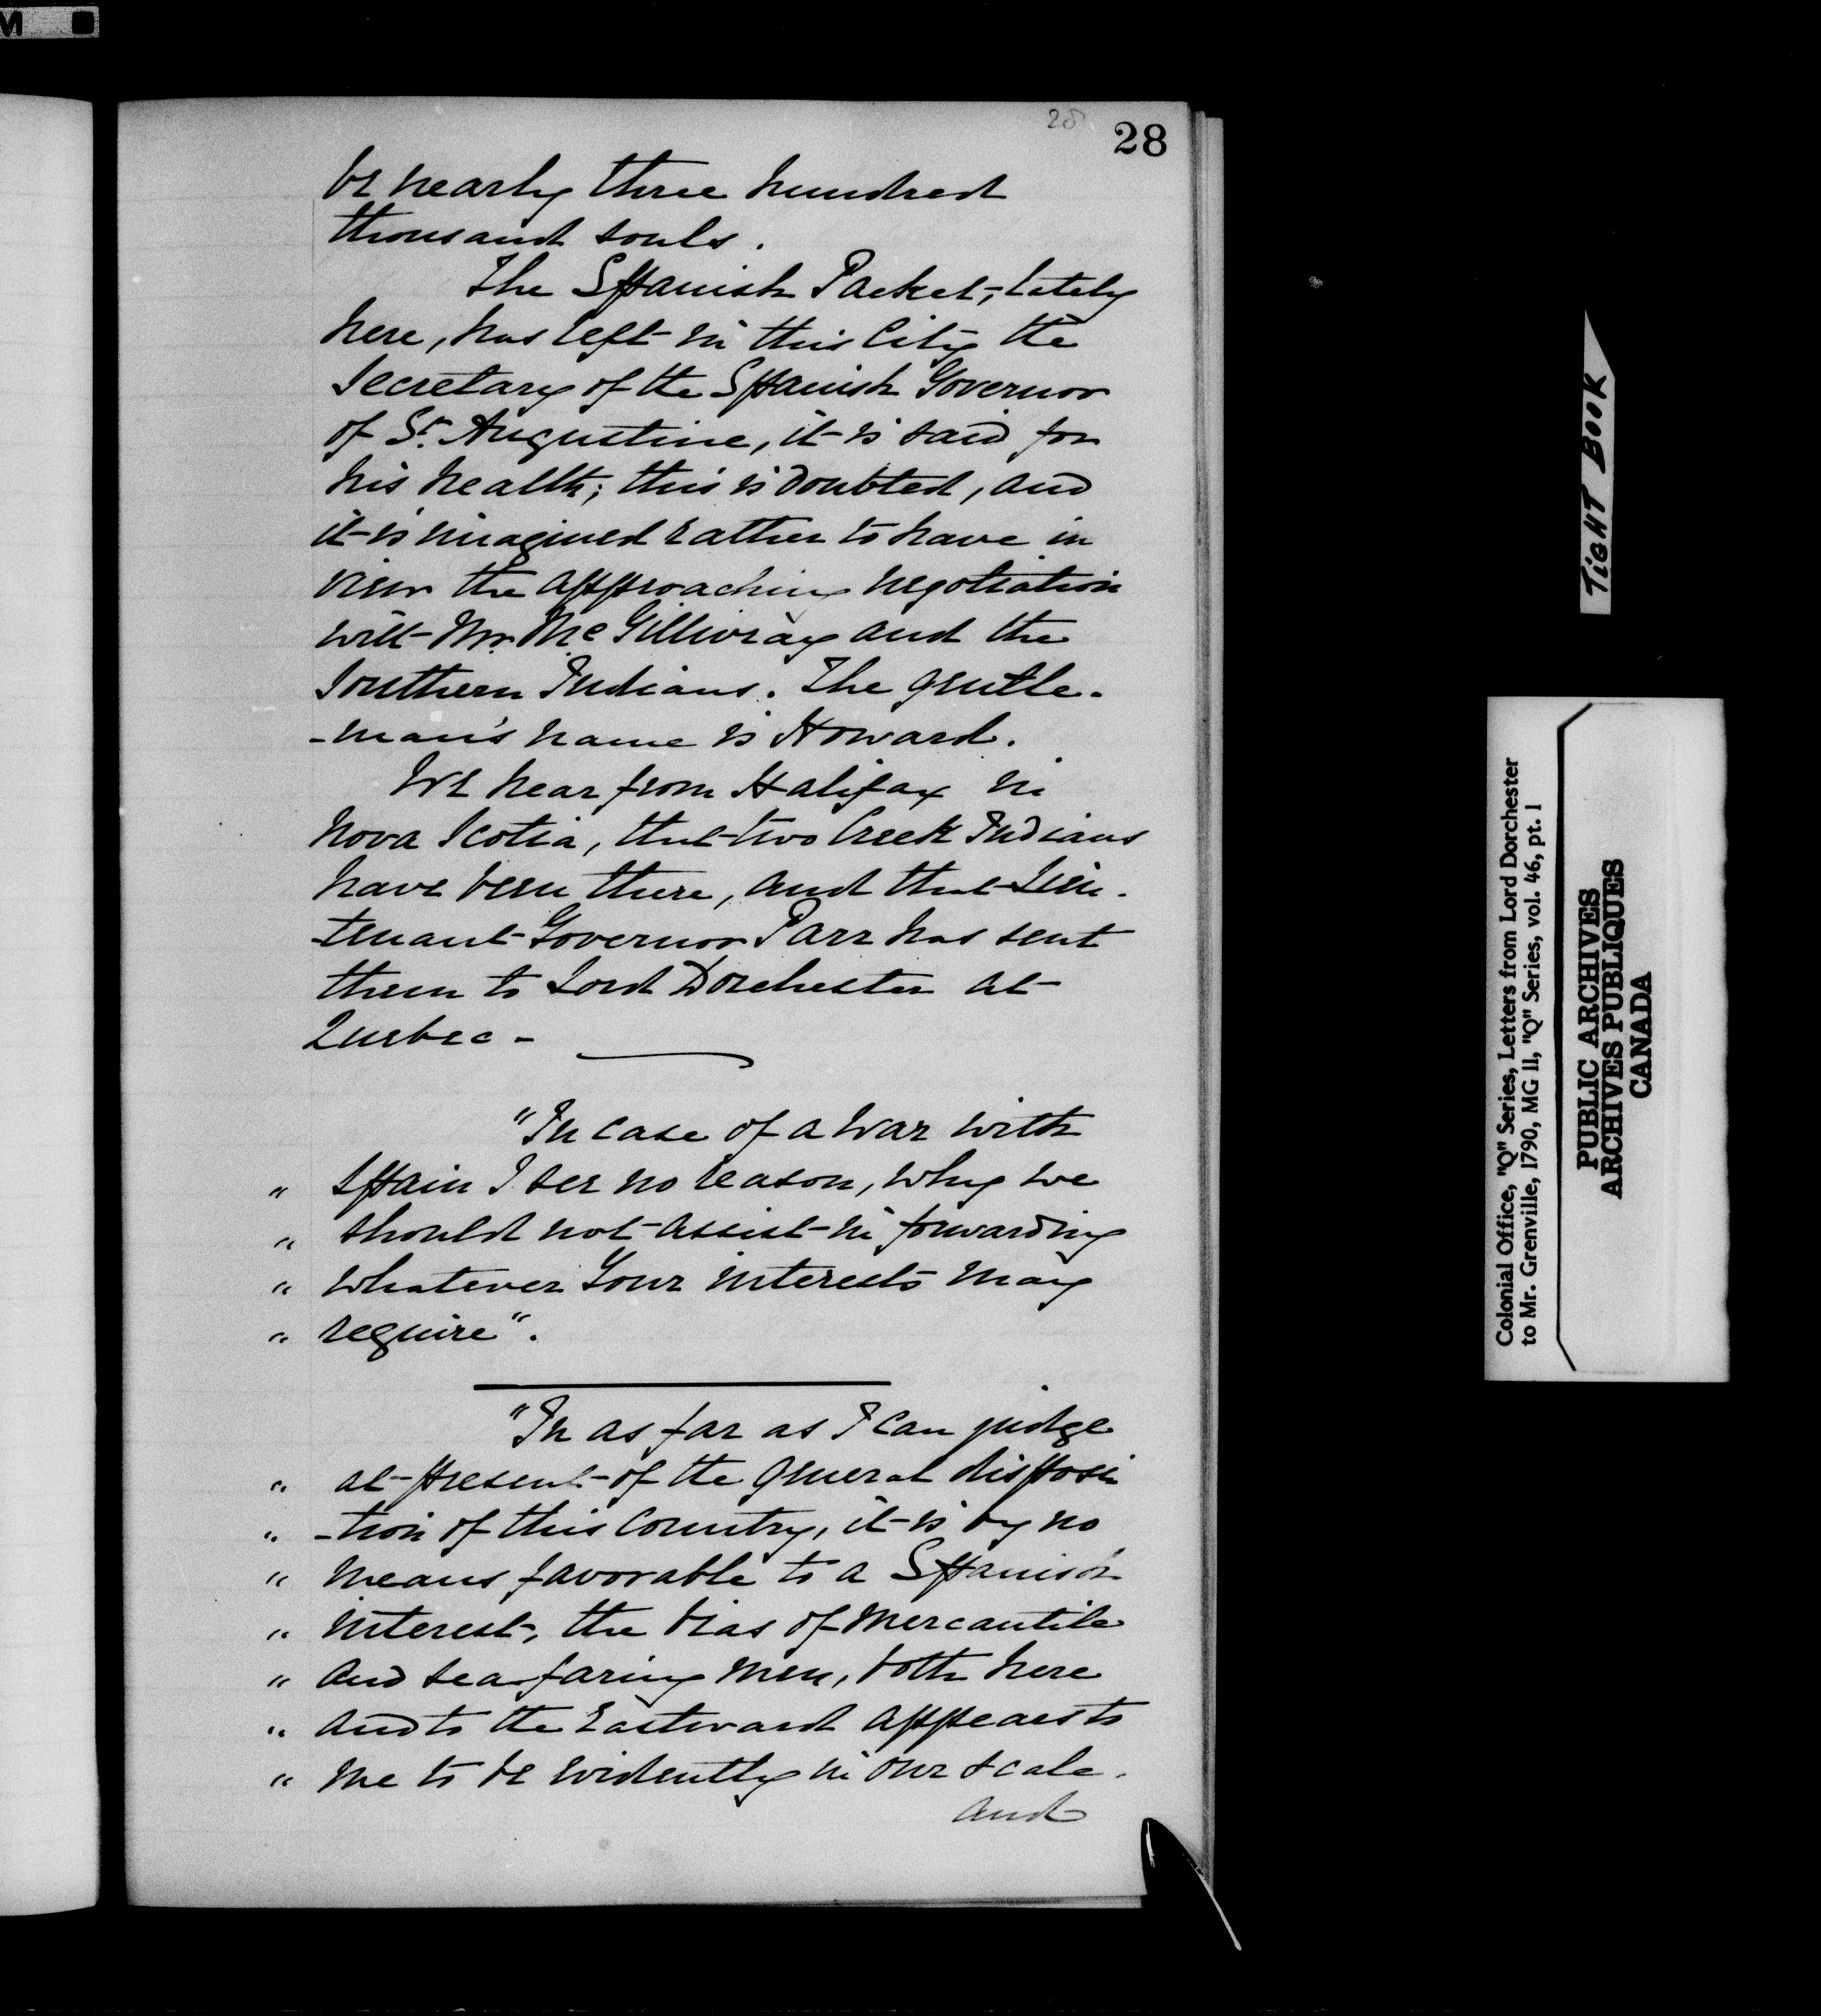 28
28
be nearly three hundred
thousand souls.
The Spanish Packet, lately
here, has left in this City the
Secretary of the Spanish Governor
of St. Augustine, it is said for
his health; this is doubted, and
it is imagined rather to have in
view the approaching negotiation
with Mr. McGillivray and the
Southern Indians. The gentle-
-man's name is Howard.
We hear from Halifax in
Nova Scotia, that two Creek Indians
have been there, and that Lieu-
-tenant Governor Parr has sent
them to Lord Dorchester at
Quebec -
"In case of a war with
" Spain I see no reason, why we
" should not assist in forwarding
" whatever Your interests may
" require".
"In as far as I can judge
" at present of the general disposi
" -tion of this Country, it is by no
" means favorable to a Spanish
" interest, the bias of mercantile
" and sea-faring men, both here
" and to the Eastward appears to
" me to be evidently in our scale.
and
TIGHT BOOK
Colonial Office, "Q" Series, Letters from Lord Dorchester
to Mr. Grenville, 1790, MG 11, "Q" Series, vol. 46, pt. 1
PUBLIC ARCHIVES
ARCHIVES PUBLIQUES
CANADA